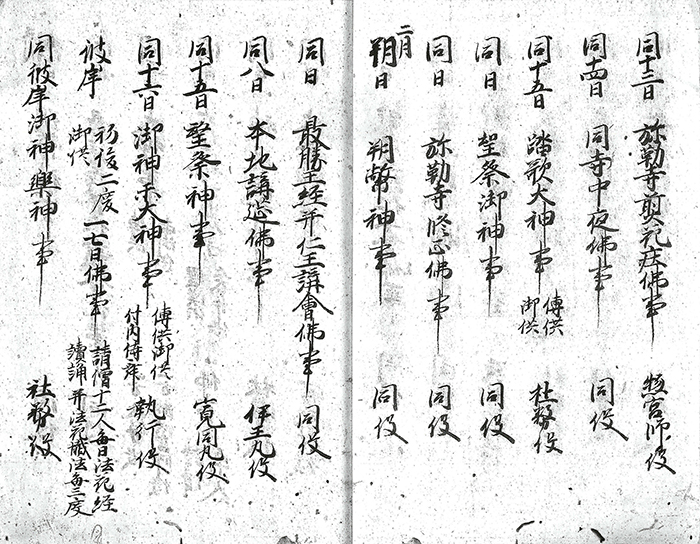 同十三日 弥勒寺剪花庄佛事 惣宮師役
同十四日 同寺中夜佛事 同役
同十五日 踏歌大神事 傅供 御供 社務役
同日 聖祭御神事 同役
同日 弥勒寺修正佛事 同役
二月
朔日 朔幣神事 同役
同日 最勝王経并仁王講會佛事 同役
同八日 本地講延佛事 伊王丸役
同十五日 聖祭神事 寛同丸役
同十六日 御神事大神事 傅供御供 付内侍斎 執行役
彼岸 初後二度 御供 一七日佛事 請僧十二人毎日法花経 讀誦并法花懺法毎三度
同彼岸御神輿神事 社務役